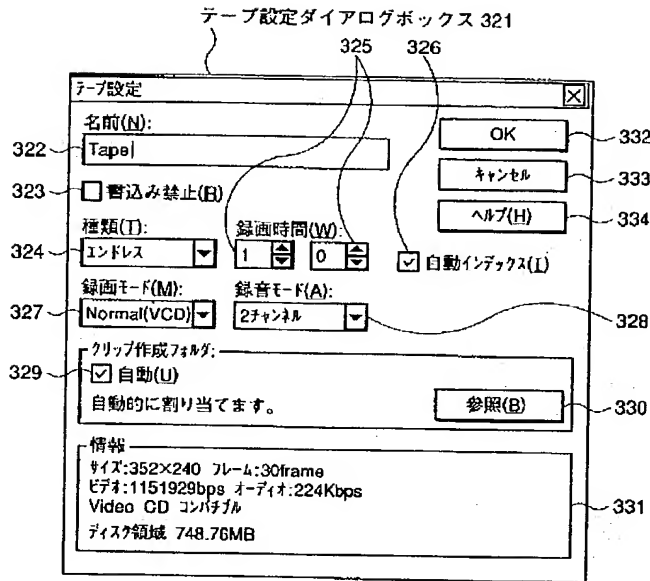 テープ設定ダイアログボックス 321
325 326
テープ設定
名前(N):
OK 332
322 Tape
キャンセル 333
323 書込み禁止(R)
ヘルプ(H) 334
種類(T): 録画時間(W):
324 エンドレス 1 0 自動インデックス(I)
録画モード(M): 録音モード(A):
327 Normal(VCD) 2チャンネル 328
クリップ作成フォルダ:
329 自動(U)
自動的に割り当てます。 参照(B) 330
情報
サイズ:352×240 フレーム:30frame
ビデオ:1151929bps オーディオ:224Kbps
Video CD コンパチブル 331
ディスク領域 748.76MB